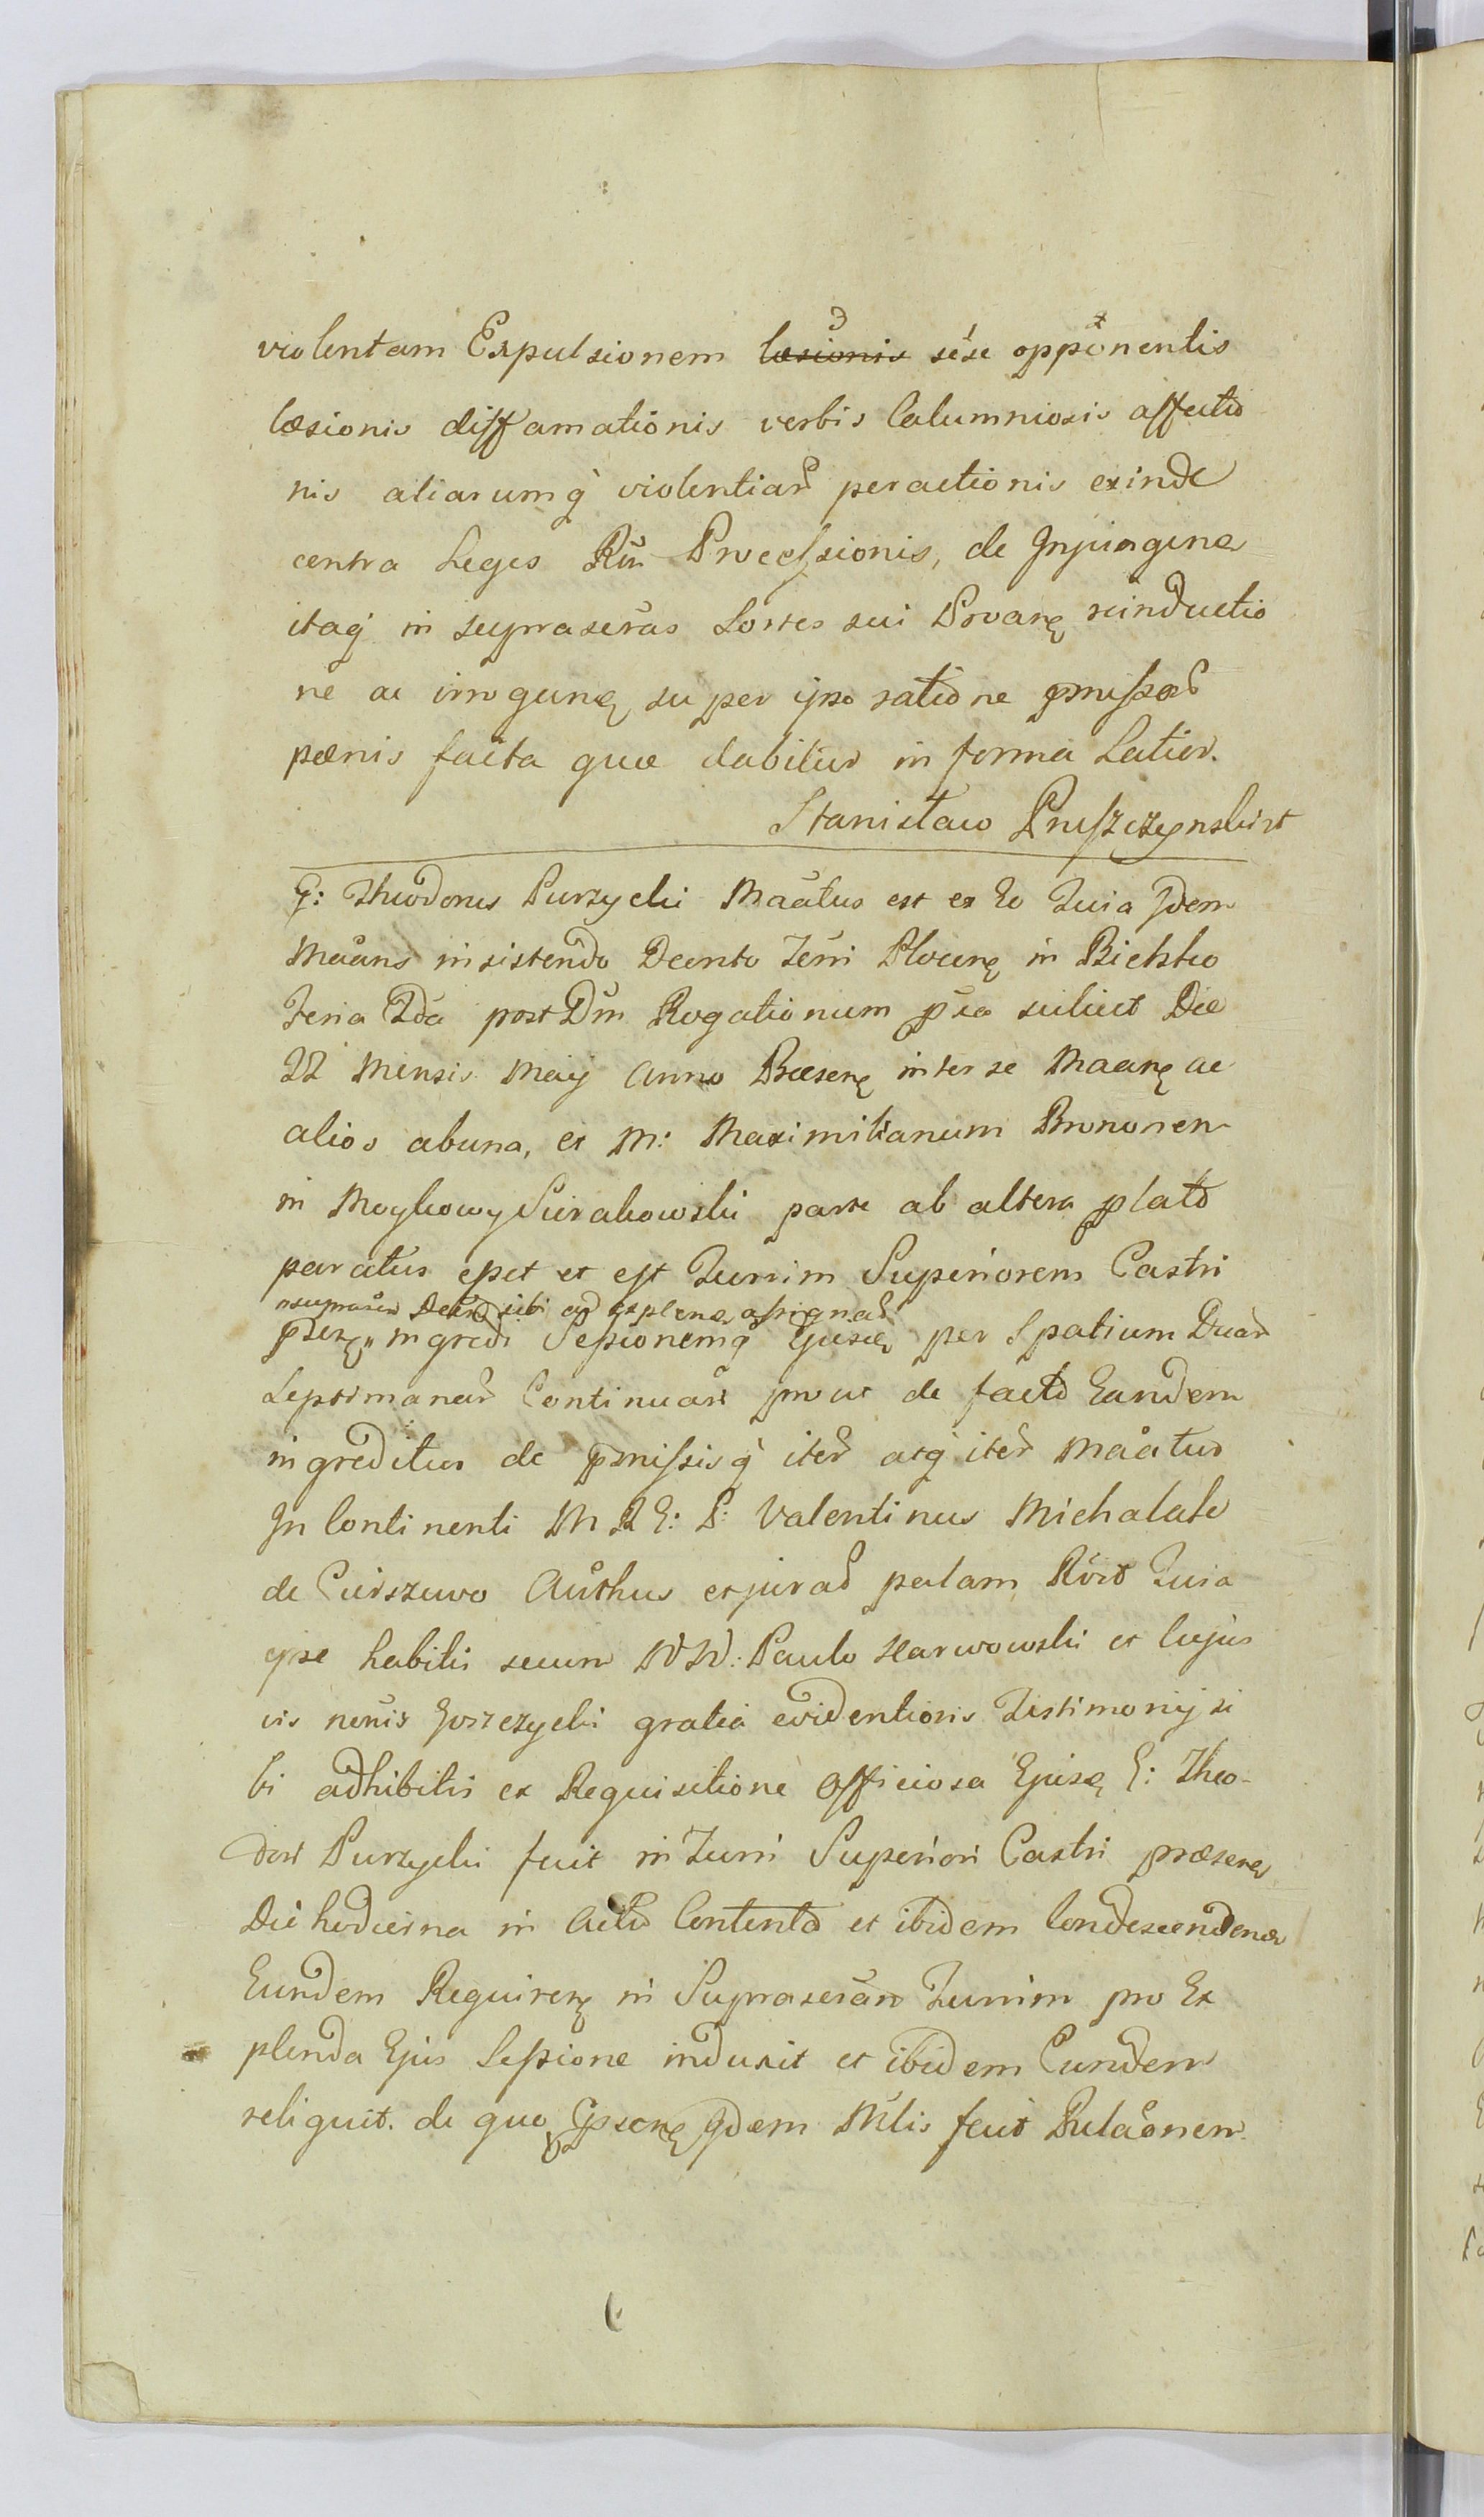 violentam Expulsionem læsionis sése opponentis
læsionis diffamationis verbis Calumniosis affectio
nis aliarumq̀ violentiar̃ peractionis exinde
contra Leges Rñi Processionis, de Injungena
itaq̀ in suprascras Sortes sui Proarę reinductio
ne ac irrogunę super ipso ratione p̃missor̃
pænis facta quæ dabitur in forma Latior.
Stanisław Pruszczynski
G: Theodorus Purzycki Maãtus est ex Eo Quia Idem
Maãns insistendo Decreto Terri Plocenę in Bielsko
Feria 2da post Dm̃ Rogationum p̃xa scilicet Die
22 Mensis Maij Anno Præsenę inter se Maanę ac
alios ab una, et M: Maximilianum
in Mogkowy Sierakowski parte ab altera p̃lato
paratus esset et est Turrim Superiorem Castri
supra Decreto sibi ad explena assignað
p̃senę „ ingredi Sessionemq̀ Ejusdę per Spatium Duar̃
Septimanar̃ Continuari prout de facto Eandem
ingreditur de p̃missisq̀ iter̃ atq̀ iter̃ Maãtur
In Continenti M R G: P: Valentinus Michalak
de Cierszewo Authus et jurað palam Rcvit Quia
ipse habitis secum NN: Paulo Karwowski et Cujus
vis nõnis Gorzycki gratia evidentioris Testimonij si
bi adhibitis ex Requisitione Officiosa Ejusdę G: Theo-
dori Purzycki fuit in Turri Superiori Castri præsenę
Die hodierna in Actu Contento et ibidem Condescendena
Eundem Requirenę in Suprascrãn Turrim pro Ex
plenda Ejus Sessione induxit et ibidem Eundem
reliquit. de quo p̃senę Idem Mlis fecit Relãonem.